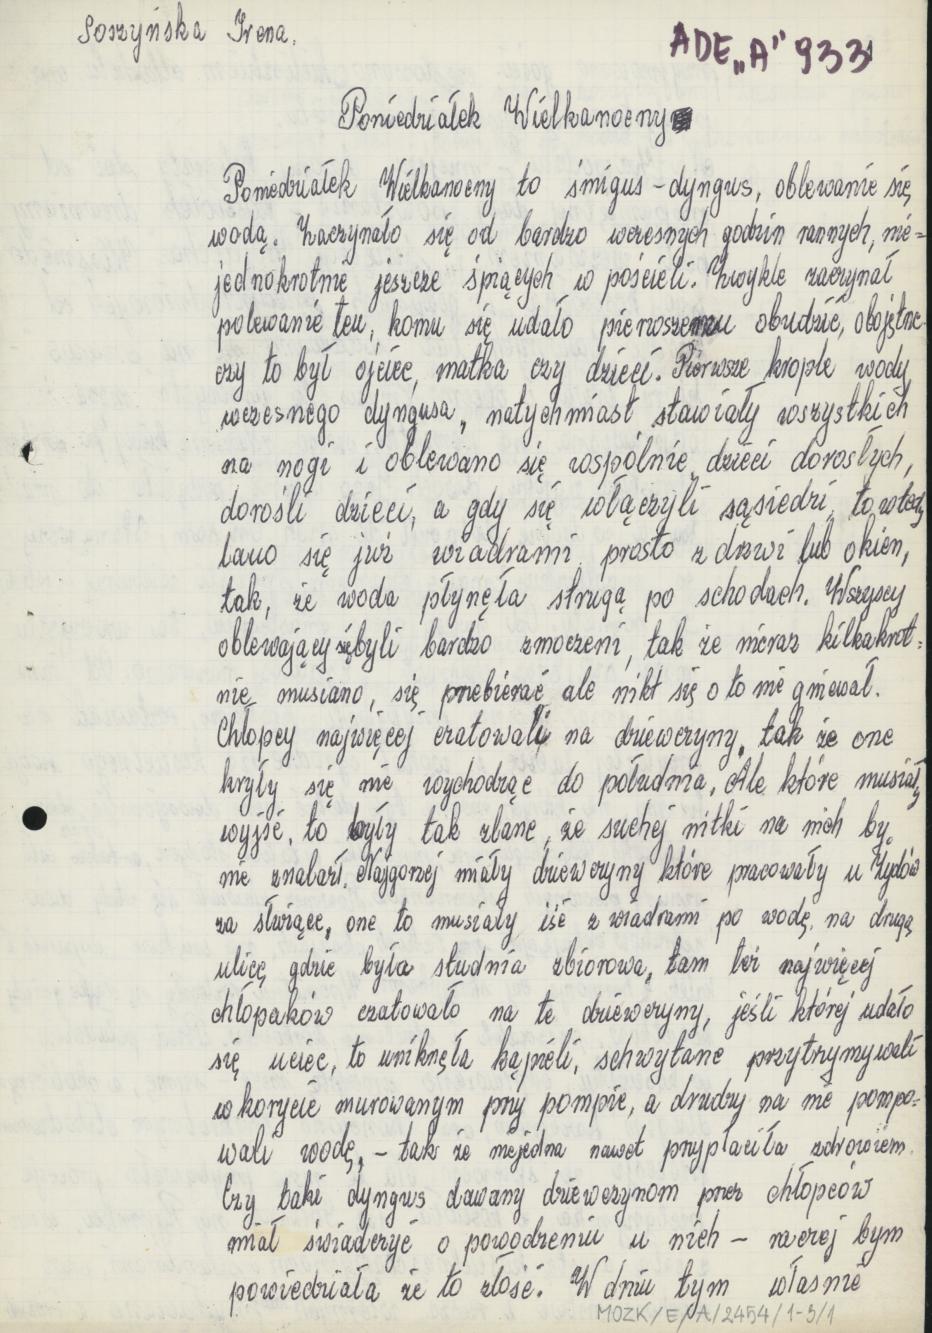 Soszyńska Irena.
ADE „A" 933
Poniedziałek Wielkanocny
Poniedziałek Wielkanocny to śmigus-dyngus, oblewanie się
wodą. Zaczynało się od bardzo wczesnych godzin rannych, nie=
jednokrotnie jeszcze śpiących w pościeli. Zwykle zaczynał
polewanie ten, komu się udało pierwszemu obudzić, obojętne
czy to był ojciec, matka czy dzieci. Pierwsze krople wody
wczesnego dyngusa, natychmiast stawiały wszystkich
na nogi i oblewano się wspólnie, dzieci dorosłych,
dorośli dzieci, a gdy się włączyli sąsiedzi, to
bano się już wiadrami prosto z drzwi lub okien,
tak, że woda płynęła strugą po schodach. Wszyscy
oblewający się byli bardzo zmoczeni, tak że nieraz kilkakrot=
nie musiano, się przebierać ale nikt się o to nie gniewał.
Chłopcy najwięcej czatowali na dziewczyny, tak że one
kryły się nie wychodząc do południa, Ale które musiały
wyjść, to były tak zlane, że suchej nitki na nich by
nie znalazł. Najgorzej miały dziewczyny które pracowały u Żydów
za służące, one to musiały iść z wiadrami po wodę, na drugą
ulicę gdzie była studnia zbiorowa, tam też najwięcej
chłopaków czatowało na te dziewczyny, jeśli której udało
się uciec, to uniknęła kąpieli, schwytane przytrzymywali
w korycie murowanym przy pompie, a drudzy na nie pompo=
wali wodę, - tak że niejedna nawet przypłaciła zdrowiem.
Czy taki dyngus dawany dziewczynom przez chłopców
miał świadczyć o powodzeniu u nich – raczej bym
powiedziała że to złość. W dniu tym właśnie
MOZK/E/A/2454/1-5/1